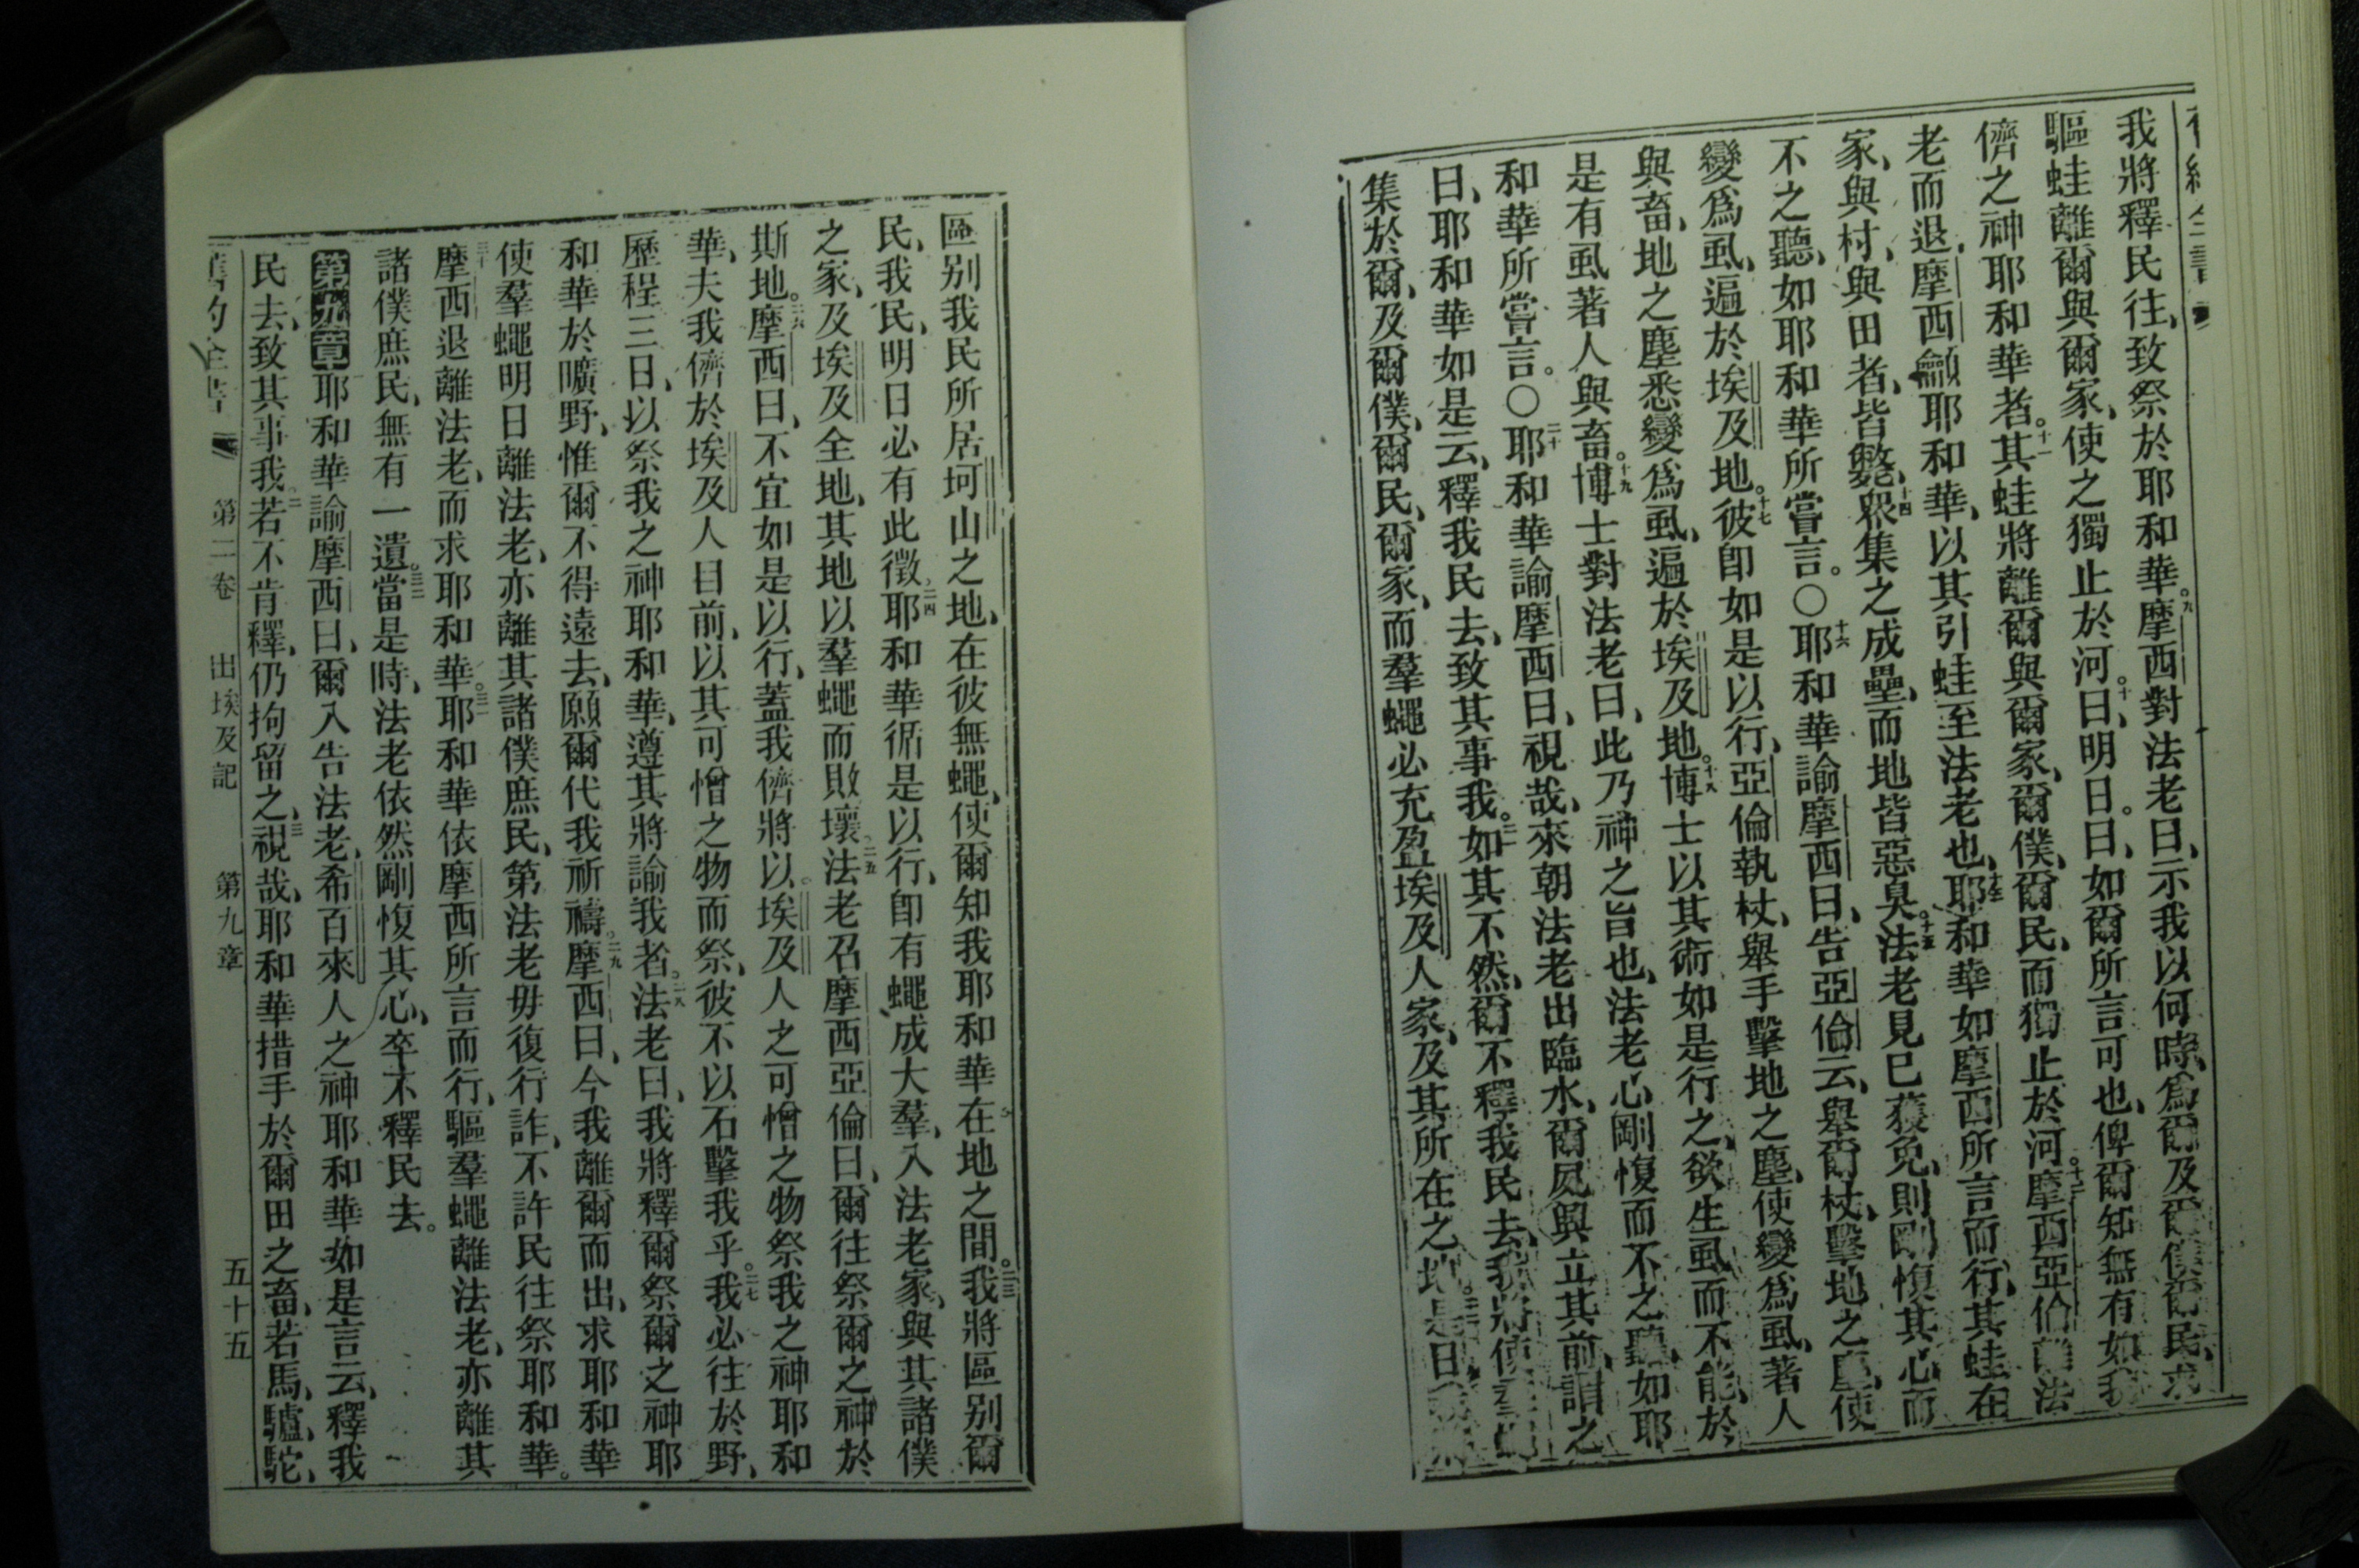 我將釋民往、致祭於耶和華。九摩西對法老曰、示我以何時、為爾及爾僕爾民、求
驅蛙離爾與爾家、使之獨止於河。十曰、明日。曰、如爾所言可也、俾爾知無有如我
儕之神耶和華者。十一其蛙將離爾與爾家、爾僕、爾民、而獨止於河。十二摩西亞倫離法
老而退、摩西籲耶和華、以其引蛙至法老也、十三耶和華如摩西所言而行、其蛙在
家、與村、與田者、皆斃、十四眾集之成壘、而地皆惡臭。十五法老見已獲免、則剛愎其心而
不之聽、如耶和華所嘗言。〇十六耶和華諭摩西曰、告亞倫云、舉爾杖、擊地之塵、使
變爲虱、遍於埃及地。十七彼卽如是以行、亞倫執杖、舉手擊地之塵、使變爲虱、著人
與畜、地之塵悉變爲虱、遍於埃及地。十八博士以其術如是行之、欲生虱而不能、於
是有虱著人與畜。十九博士對法老曰、此乃神之旨也、法老心剛愎而不之聽、如耶
和華所嘗言。〇二十耶和華諭摩西曰、視哉、來朝法老出臨水、爾夙興立其前、謂之
曰、耶和華如是云、釋我民去、致其事我。二一如其不然、爾不釋我民去、我將使羣蠅
集於爾、及爾僕、爾民、爾家、而羣蠅必充盈埃及人家、及其所在之地。二二是日
區別我民所居坷山之地、在彼無蠅、使爾知我耶和華在地之間。二三我將區別爾
民、我民、明日必有此徵。二四耶和華循是以行、卽有蠅成大羣、入法老家、與其諸僕
之家、及埃及全地、其地以羣蠅而敗壞。二五法老召摩西亞倫曰、爾往祭爾之神於
斯地。二六摩西曰、不宜如是以行、蓋我儕將以埃及人之可憎之物祭我之神耶和
華、夫我儕於埃及人目前、以其可憎之物而祭、彼不以石擊我乎。二七我必往於野、
歷程三日、以祭我之神耶和華、遵其將諭我者。二八法老曰、我將釋爾祭爾之神耶
和華於曠野、惟爾不得遠去、願爾代我祈禱。二九摩西曰、今我離爾而出、求耶和華
使羣蠅明日離法老、亦離其諸僕庶民、第法老毋復行詐、不許民往祭耶和華。
三十摩西退離法老、而求耶和華。三一耶和華依摩西所言而行、驅羣蠅離法老、亦離其
諸僕庶民、無有一遺。三二當是時、法老依然剛愎其心、卒不釋民去。
第九章耶和華諭摩西曰、爾入告法老、希百來人之神耶和華如是言云、釋我
民去、致其事我。二若不肯釋、仍拘留之、三視哉、耶和華措手於爾田之畜、若馬、驢、駝、
舊約全書 第二卷 出埃及記 第九章 五十五